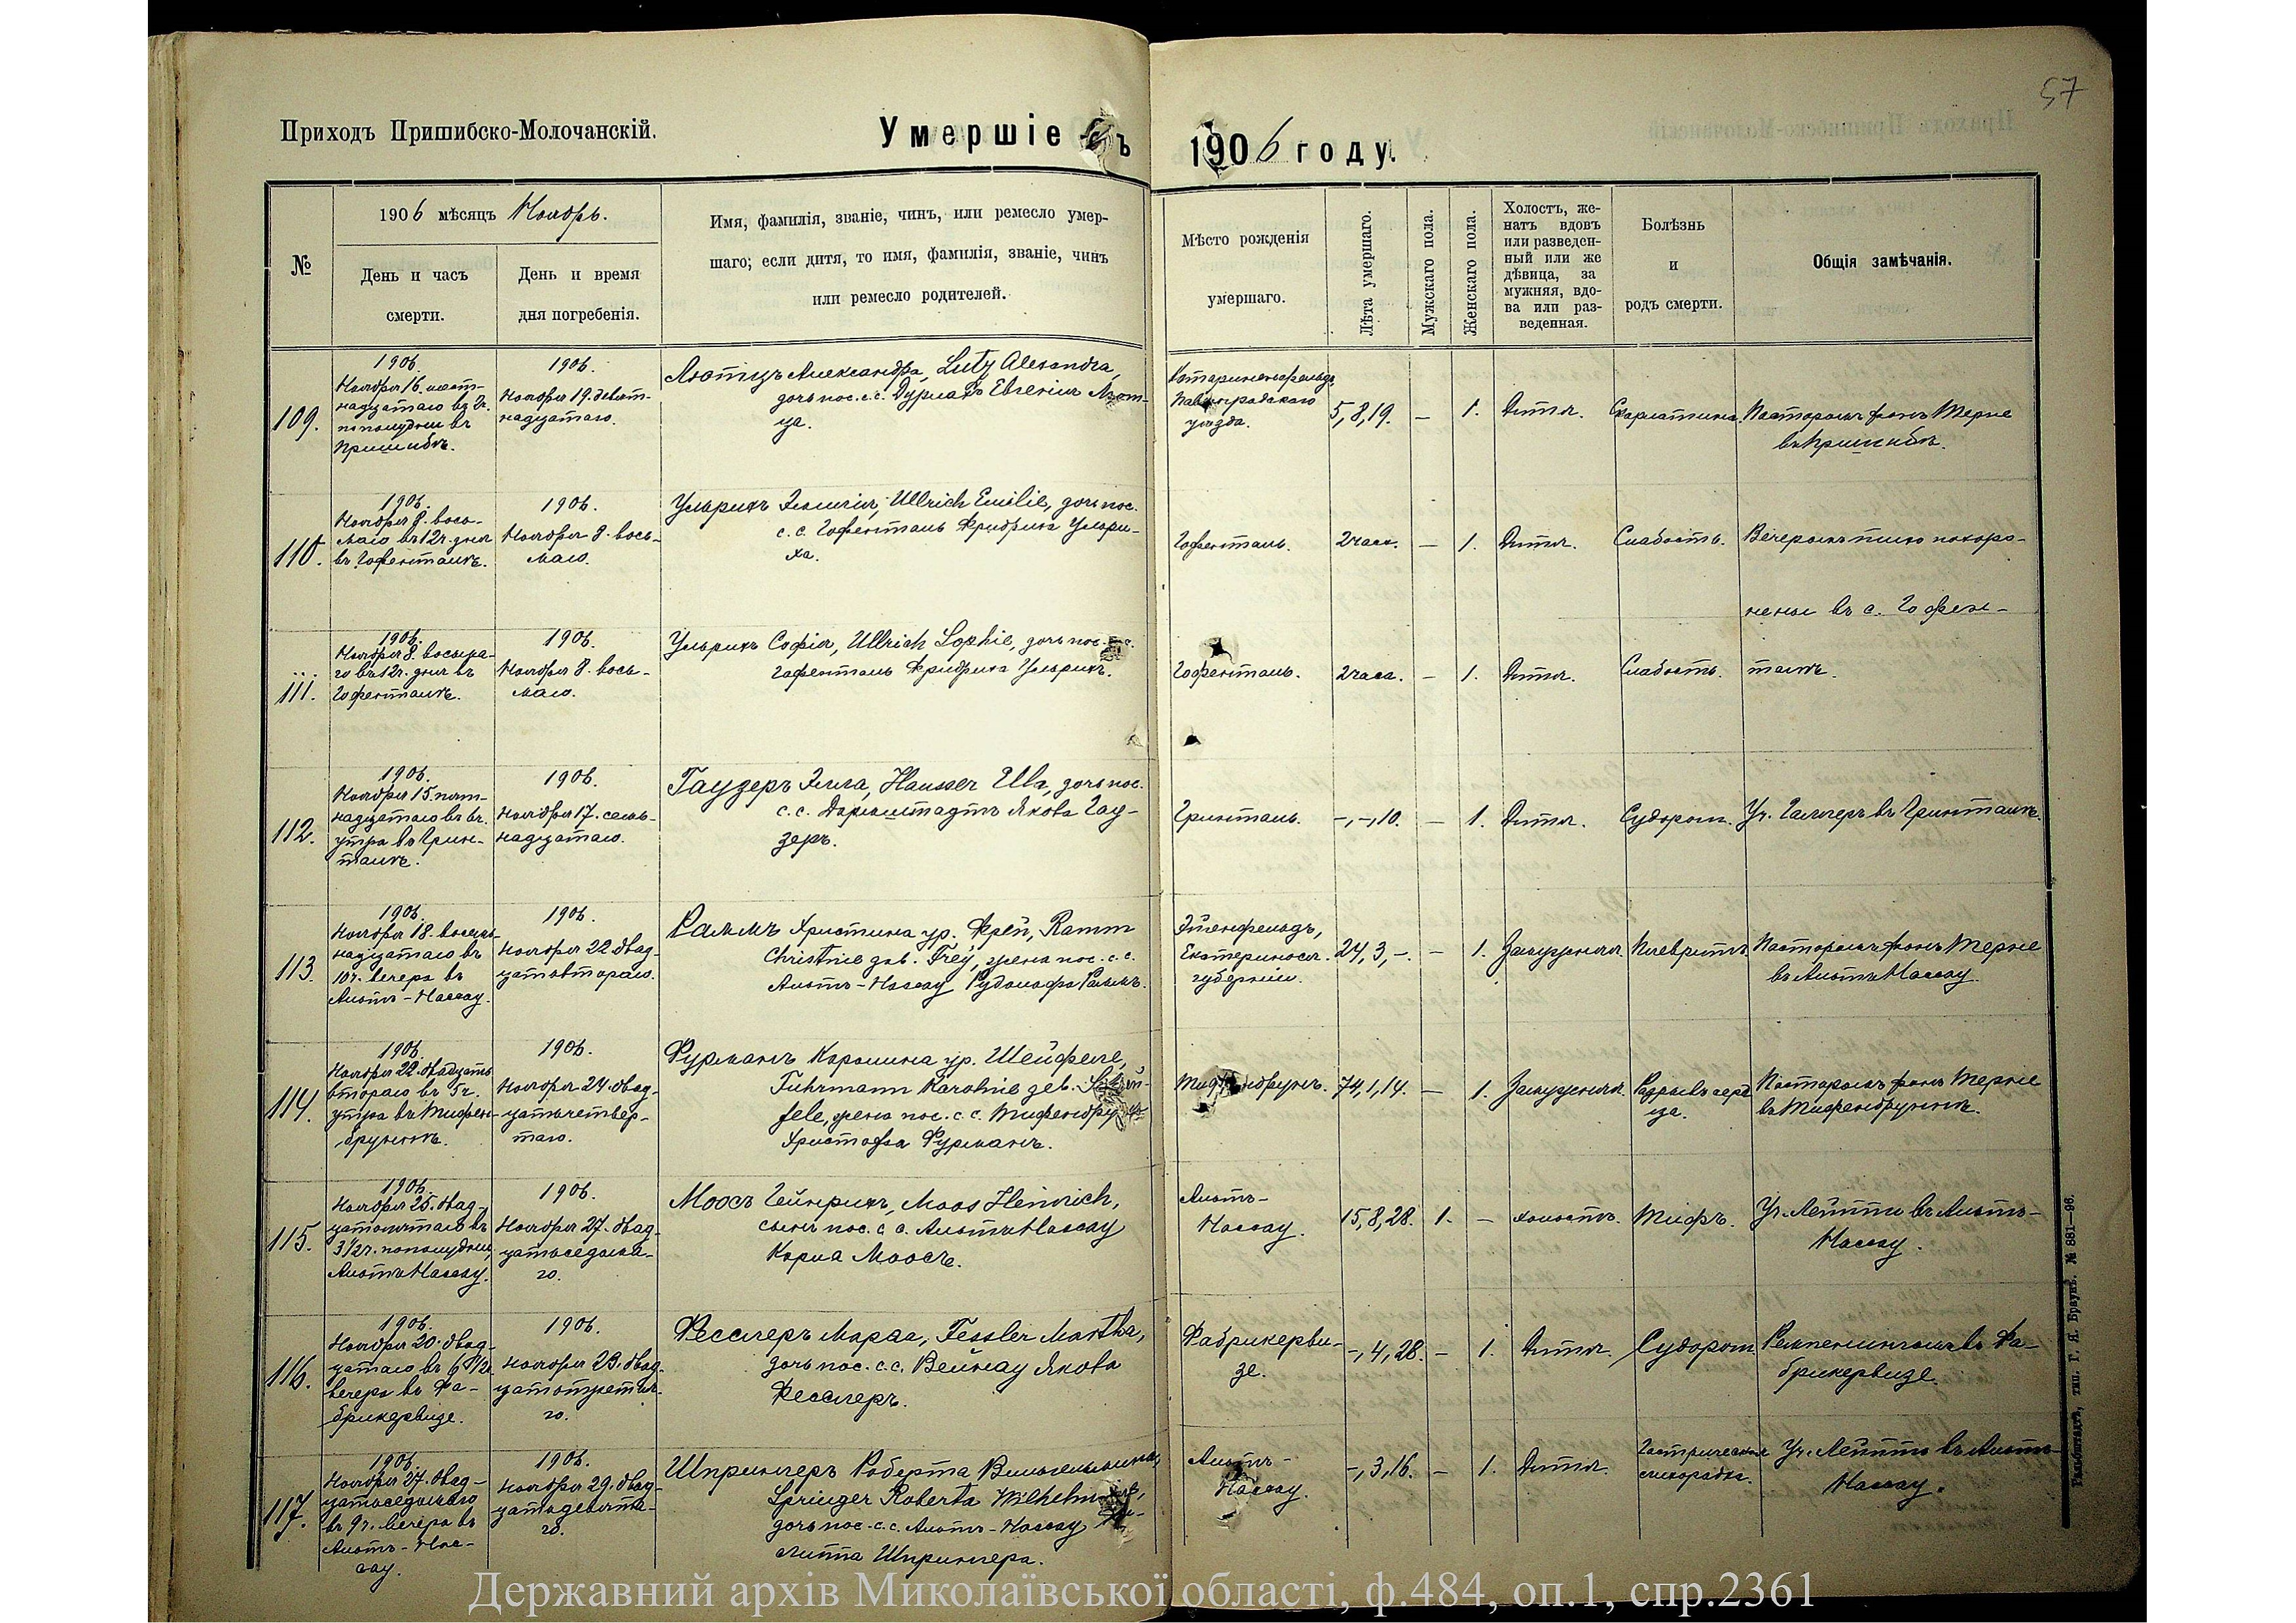 57
Приходъ Пришибско-Молочанскій.
Умершіе въ 1906 году.
№
1906 мѣсяцъ Ноябрь.
День и часъ
смерти.
День и время
дня погребенія.
Имя, фамилія, званіе, чинъ, или ремесло умер-
шаго; если дитя, то имя, фамилія, званіе, чинъ
или ремесло родителей.
Мѣсто рожденія
умершаго.
Лѣта умершаго.
Мужскаго пола.
Женскаго пола.
Холостъ, же-
натъ вдовъ
или разведен-
ный или же
дѣвица, за
мужняя, вдо-
ва или раз-
веденная.
Болѣзнь
и
родъ смерти.
Общія замѣчанія.
109.
1906.
Ноября 16. шест-
надцатаго въ 2ч.
пополудни въ
Пришибѣ.
1906.
Ноября 19. девят-
надцатаго.
Лютцъ Александра, Lutz Alexandra,
дочь пос. с.с. Дурлахъ Евгенія Лют-
ца.
Катариненфельдъ
Павлоградскаго
уѣзда.
5,8,19.
—
1.
Дитя.
Скарлатина.
Пасторомъ фонъ Терне
въ Пришибѣ.
110.
1906.
Ноября 8. вось-
маго въ 12ч. дня
въ Гофенталѣ.
1906.
Ноября 8. вось-
маго.
Ульрихъ Эмилія, Ullrich Emilie, дочь пос.
с. с. Гофенталь Фридриха Ульри-
ха.
Гофенталь.
2 часа.
—
1.
Дитя.
Слабость.
Вечеромъ тихо похоро-
нены въ с. Гофен-
талѣ.
111.
1906.
Ноября 8. восьма-
го въ 12ч. дня въ
Гофенталѣ.
1906.
Ноября 8. вось-
маго.
Ульрихъ Софія, Ullrich Sophie, дочь пос.
Гофенталь Фридриха Ульрихъ.
Гофенталь.
2 часа.
—
1.
Дитя.
Слабость.
112.
1906.
Ноября 15. пят-
надцатаго въ 6ч.
утра въ Грин-
талѣ.
1906.
Ноября 17. семь-
надцатаго.
Гаузеръ Элла, Hausser Ella, дочь пос.
с. с. Дармштадтъ Якова Гау-
зеръ.
Гринталь.
-,-,10.
—
1.
Дитя.
Судорог.
Уч. въ Гринталѣ.
113.
1906.
Ноября 18. восемь-
надцатаго въ
10ч. вечера въ
Альтъ-Нассау.
1906.
Ноября 22. двад-
цатьвтораго.
Раммъ Христина ур. Фрей, Ramm
Christine geb. Frey, жена пос. с. с.
Альтъ-Нассау Рудольфа Раммъ.
Эйгенфельдъ,
Екатериносл.
губерніи.
24,3,-.
—
1.
Замужняя.
Плевритъ.
Пасторомъ фонъ Терне
въ Альтъ Нассау.
114.
1906.
Ноября 22. двадцать
втораго въ 5ч.
утра въ Тифен-
бруннѣ.
1906.
Ноября 24. двад-
цатьчетвер-
таго.
Фурманъ Каролина ур. Шейфеле,
Fuhrmann Karoline geb.
fele, жена пос. с. с. Тифенбрунъ
Христофа Фурманъ.
Тифенбрунъ.
74,1,14.
—
1.
Замужняя.
Разрывъ серд-
ца.
Пасторомъ фонъ Терне
въ Тифенбруннѣ.
115.
1906.
Ноября 25. двад-
цатьпятаго въ
3 1/2ч. пополудни,
Альтъ Нассау.
1906.
Ноября 27. двад-
цатьседьма-
го.
Моосъ Гейнрихъ, Moos Heinrich,
сынъ пос. с с. Альтъ Нассау
Карла Моосъ.
Альтъ-
Нассау.
15,8,28.
1.
—
Холостъ.
Тифъ.
Уч. въ Альтъ-
Нассау.
116.
1906.
Ноября 20. двад-
цатаго въ 6 1/2ч.
вечера въ Фа-
брикервизе.
1906.
Ноября 23. двад-
цатьтретья-
го.
Фесслеръ Марѳа, Fessler Martha,
дочь пос. с.с. Вейнау Якова
Фесслеръ.
Фабрикерви-
зе.
-,4,28.
—
1.
Дитя.
Судорог.
въ Фа-
брикервизе.
117.
1906.
Ноября 27. двад-
цатьседьмаго
въ 9ч. вечера въ
Альтъ-Нас-
сау.
1906.
Ноября 29. двад-
цатьдевята-
го.
Шпрингеръ Роберта Вильгельмина,
Springer Roberta Wilhelmine,
дочь пос. с.с. Альтъ-Нассау
Шпрингера.
Альтъ-
Нассау.
-,3,16.
—
1.
Дитя.
Гастрическая
лихорадка.
Уч. въ Альтъ-
Нассау.
Гальбштадтъ, тип. Г. Я. Браунъ. № 881—96.
Державний архів Миколаївської області, ф.484, оп.1, спр.2361